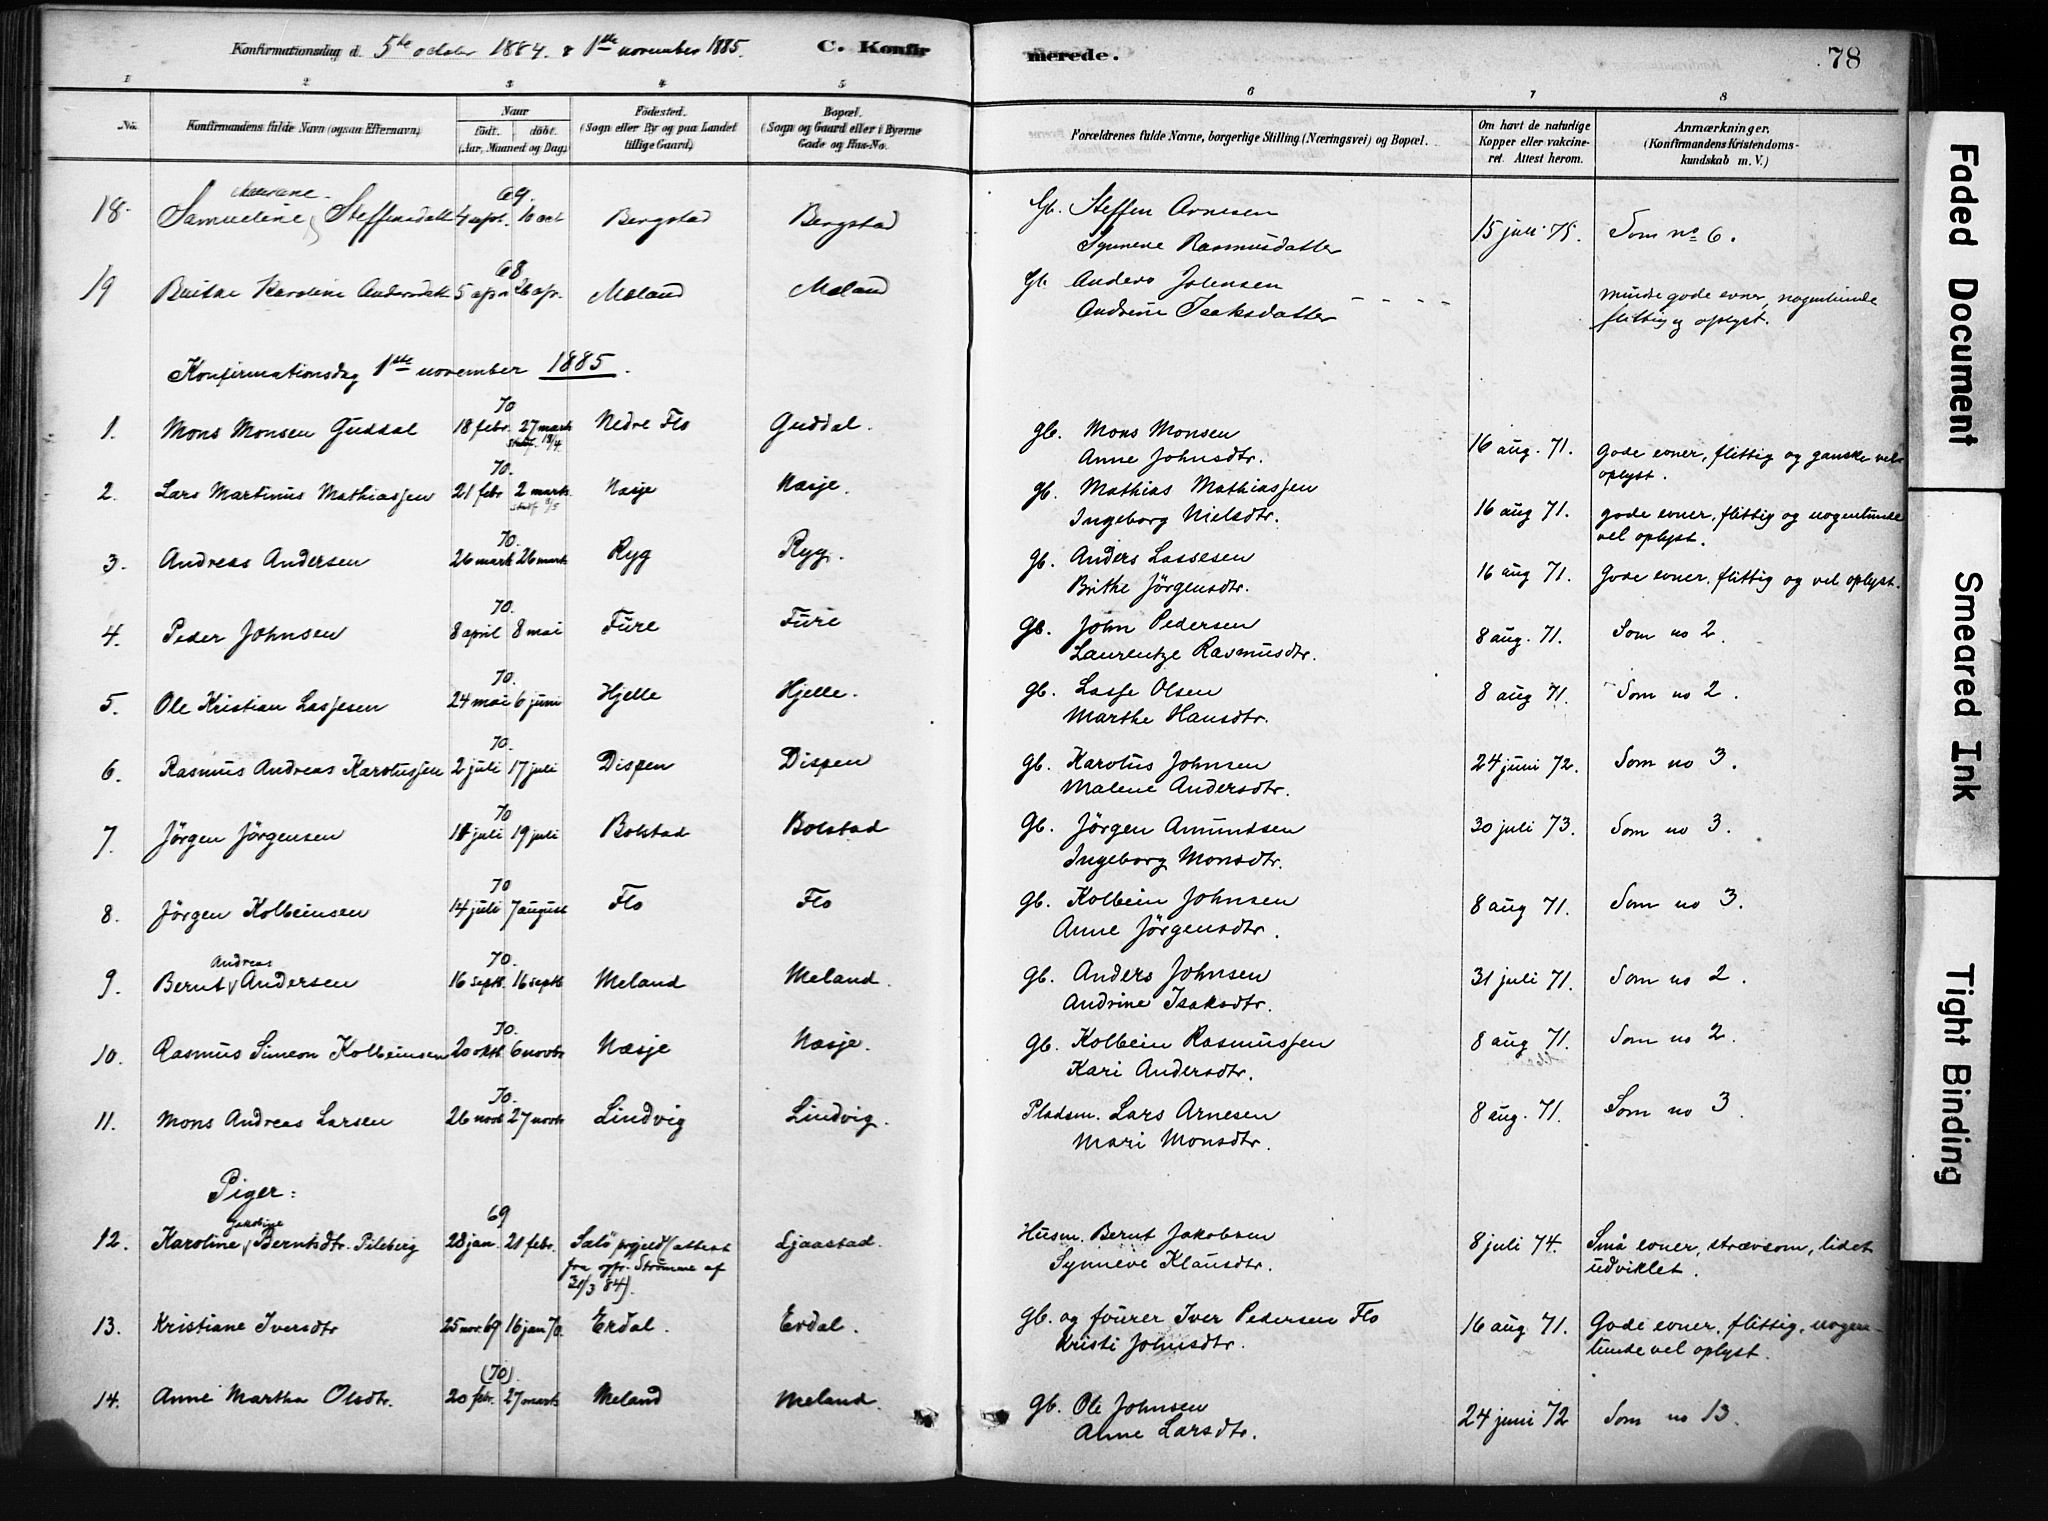 Konfirmationsdag d. 5te october 1884. & 1ste november 1885. C. Konfirmerede. 78
1 2 3 4 5 6 7 8
No. Konfirmandens fulde Navn (ogsaa Efternavn) Naar født. døbt. (Aar, Maaned og Dag) Fødested. (Sogn eller By og paa Landet tillige Gaard) Bopæl. (Sogn og Gaard eller i Byerne Gade og Hus-No. Forældrenes fulde Navne, borgerlige Stilling (Næringsvei) og Bopæl. Om havt de naturlige Kopper eller vakcineret. Attest herom. Anmærkninger. (Konfirmandens Kristendomskundskab m. V.)
69.
18. Samueline Steffensdatt 4 sept. 10 oct Bergstad Bergstad Gb. Steffen Arnesen 15 juli 75. Som no 6.
Synneve Rasmusdatter
68
19 Brithe Karoline Andersdatt 5 apr 26 apr. Meland Meland Gb. Anders Johnsen
Andrine Isaksdatter - - - - mindre gode evner, nogenlunde
flittig og oplyst.
Konfirmationsdag 1ste november 1885.
70
1. Mons Monsen Guddal 18 febr. 27 marts Nedre Flo Guddal. gb. Mons Monsen
Anne Johnsdtr. 16 aug. 71. Gode evner, flittig og ganske vel
oplyst.
70.
2. Lars Martinus Mathiassen 21 febr 2 marts Næsje Næsje. gb. Mathias Mathiassen
Ingeborg Nielsdtr. 16 aug 71. gode evner, flittig og nogenlunde
vel oplyst.
70.
3. Andreas Andersen 26 mark 26 mark Ryg Ryg. gb. Anders Lassesen
Brithe Jörgensdtr. 16 aug 71. Gode evner, flittig og vel oplyst.
70.
4. Peder Johnsen 8 april 8 mai Füre Füre gb. John Pedersen
Laurentze Rasmusdtr. 8 aug. 71. Som no 2.
70.
5. Ole Kristian Lassesen 24 mai 6 juni Hjelle Hjelle. gb. Lasse Olsen
Marthe Hansdtr. 8 aug 71. Som no 2.
70.
6. Rasmus Andreas Karolussen 2 juli 17 juli Dispen Dispen gb. Karolus Johnsen
Malene Andersdtr. 24 juni 72. Som no 3.
70
7. Jörgen Jörgensen juli 19 juli Bolstad Bolstad Gb. Jörgen Amundsen
Ingeborg Monsdtr. 30 juli 73. Som no 3.
70
8. Jörgen Kolbeinsen 14 juli 7 august Flo Flo gb. Kolbein Johnsen
Anne Jörgensdtr. 8 aug 71. Som no 3.
Andreas 70.
9. Bernt Andersen 16 septb. 16 septb Meland Meland. gb. Anders Johnsen
Andrine Isaksdtr. 31 juli 71. Som no 2.
70.
10. Rasmus Simeon Kolbeinsen 20 oktb 6 novbr Næsje Næsje. gb. Kolbein Rasmussen
Kari Andersdtr. 8 aug 71. Som no 2.
70.
11. Mons Andreas Larsen 26 novb 27 novb Lindvig Lindvig. Pladsm. Lars Arnesen
Mari Monsdtr. 8 aug. 71. Som no 3.
Piger:
Jakobine 69
12. Karoline Berntsdtr. Pileberg 28 jan. 21 febr. Selö prgjeld (attest Ljaastad. Husm. Bernt Jakobsen 8 juli 74. Små evner, strævsom, lidet
fra spr. Strømme af Synneve Klausdtr. udviklet.
31/3 84).
13. Kristiane Iversdtr 25 nov. 69 16 jan 70. Erdal. Erdal. gb. og fourer Iver Pedersen Flo 16 aug 71. Gode evner, flittig, nogen-
Kristi Johnsdtr. lunde vel oplyst.
(70).
14. Anne Martha Olsdtr. 20 febr. 27 marts Meland Meland. gb. Ole Johnsen
Anne Larsdtr. 24 juni 72 Som no 13.
Faded Document
Smeared Ink
Tight Binding